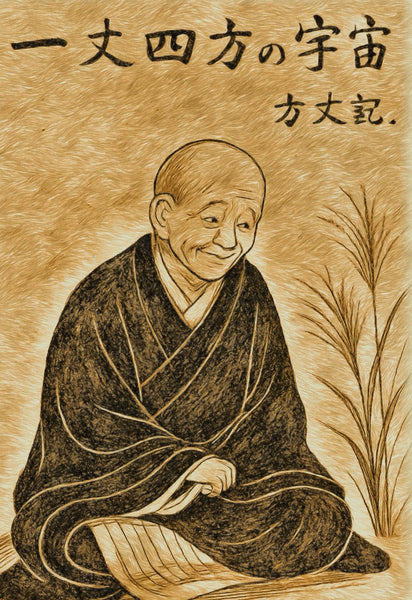 一丈四方の宇宙
方丈記.